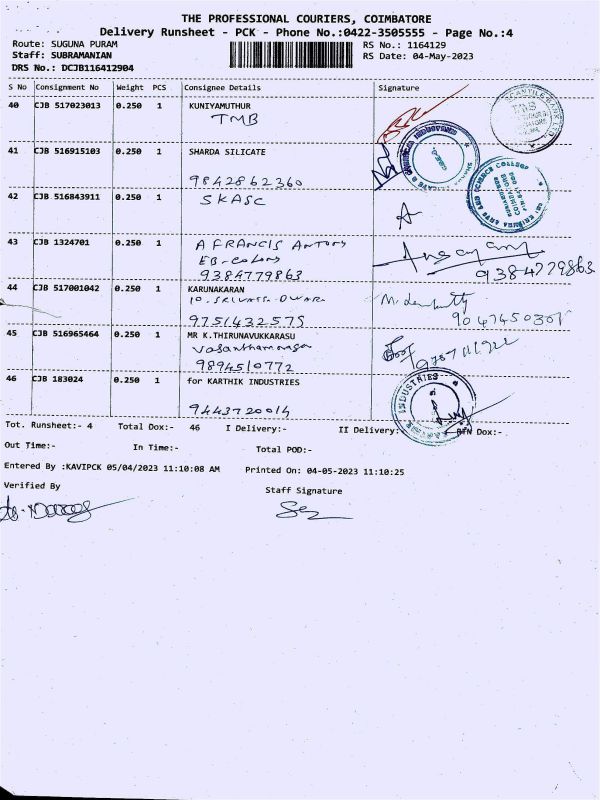 THE PROFESSIONAL COURIERS, COIMBATORE
Delivery Runsheet - PCK - Phone No.:0422-3505555 - Page No.:4
Route: SUGUNA PURAM RS No.: 1164129
Staff: SUBRAMANIAN RS Date: 04-May-2023
DRS No.: DCJB116412904
S No Consignment No Weight PCS Consignee Details Signature
40 CJB 517023013 0.250 1 KUNIYAMUTHUR
TMB
41 CJB 516915103 0.250 1 SHARDA SILICATE
9842862360
42 CJB 516843911 0.250 1 SKASC
43 CJB 1324701 0.250 1 A FRANCIS Antony
EB-Colony
9384779863 9384779863
44 CJB 517001042 0.250 1 KARUNAKARAN
9751432575 9047450301
45 CJB 516965464 0.250 1 MR K.THIRUNAVUKKARASU
Vasanthamnagar
9894510772
46 CJB 183024 0.250 1 for KARTHIK INDUSTRIES
9443720014
Tot. Runsheet:- 4 Total Dox:- 46 I Delivery:- II Delivery:- RTN Dox:-
Out Time:- In Time:- Total POD:-
Entered By :KAVIPCK 05/04/2023 11:10:08 AM Printed On: 04-05-2023 11:10:25
Verified By Staff Signature